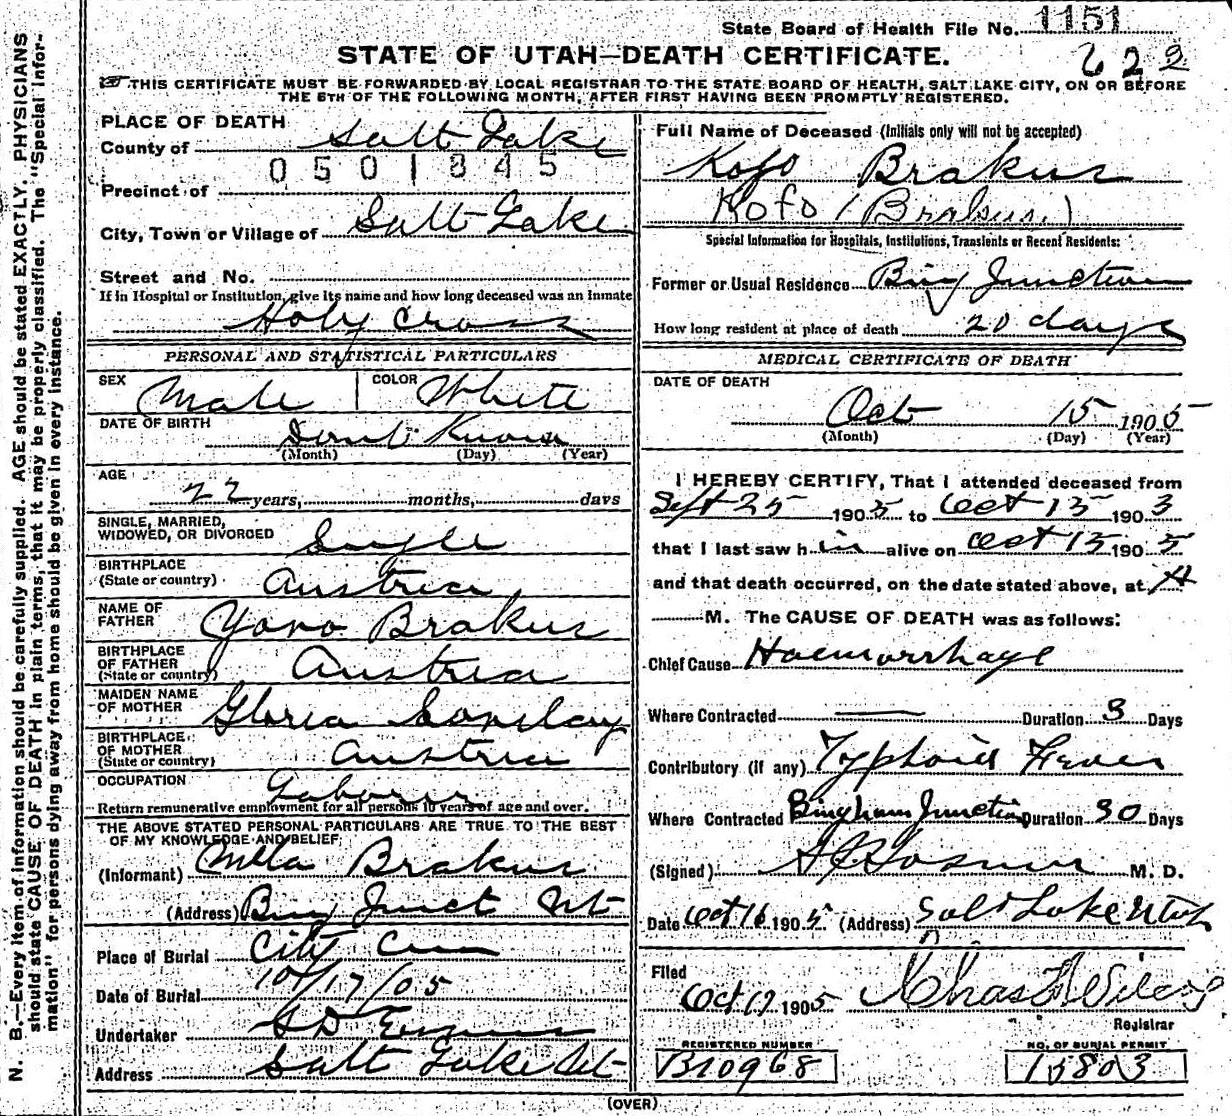 State Board of Health File No. 1151
622
STATE OF UTAH—DEATH CERTIFICATE.
THIS CERTIFICATE MUST BE FORWARDED BY LOCAL REGISTRAR TO THE STATE BOARD OF HEALTH, SALT LAKE CITY, ON OR BEFORE
THE 5TH OF THE FOLLOWING MONTH, AFTER FIRST HAVING BEEN PROMPTLY REGISTERED.
N. B.—Every item of information should be carefully supplied. AGE should be stated EXACTLY. PHYSICIANS
should state CAUSE OF DEATH in plain terms, that it may be properly classified. The "Special Infor-
mation" for persons dying away from home should be given in every instance.
PLACE OF DEATH
County of Salt Lake
0501845
Precinct of
City, Town or Village of Salt Lake
Street and No.
If in Hospital or Institution, give its name and how long deceased was an inmate
Holy Cross
PERSONAL AND STATISTICAL PARTICULARS
SEX Male COLOR White
DATE OF BIRTH Dont Know
(Month) (Day) (Year)
AGE
22 years, months, days
SINGLE, MARRIED,
WIDOWED, OR DIVORCED Single
BIRTHPLACE
(State or country) Austria
NAME OF
FATHER Yovo Brakus
BIRTHPLACE
OF FATHER
(State or country) Austria
MAIDEN NAME
OF MOTHER Gloria
BIRTHPLACE
OF MOTHER
(State or country) Austria
OCCUPATION Laborer
Return remunerative employment for all persons 10 years of age and over.
THE ABOVE STATED PERSONAL PARTICULARS ARE TRUE TO THE BEST
OF MY KNOWLEDGE AND BELIEF
(Informant) Brakus
(Address) Bing Junct Ut
Place of Burial City Cem
Date of Burial 10/17/05
Undertaker
Address Salt Lake Ut
Full Name of Deceased (Initials only will not be accepted)
Kofo Brakus
Kofo (Brakus.)
Special Information for Hospitals, Institutions, Transients or Recent Residents:
Former or Usual Residence Bing Junction
How long resident at place of death 20 days
MEDICAL CERTIFICATE OF DEATH
DATE OF DEATH
Oct 15 1905
(Month) (Day) (Year)
I HEREBY CERTIFY, That I attended deceased from
Sept 25 1905 to Oct 15 1903
that I last saw h im alive on Oct 15 1905
and that death occurred, on the date stated above, at
M. The CAUSE OF DEATH was as follows:
Chief Cause Haemorrhage
Where Contracted — Duration 3 Days
Contributory (if any) Typhoid Fever
Where Contracted Bingham Junction Duration 30 Days
(Signed) M. D.
Date Oct 16 1905 (Address) Salt Lake Utah
Filed
Oct 17 1905 Chas F Wilcox
Registrar
REGISTERED NUMBER
B10968
NO. OF BURIAL PERMIT
15803
(OVER)